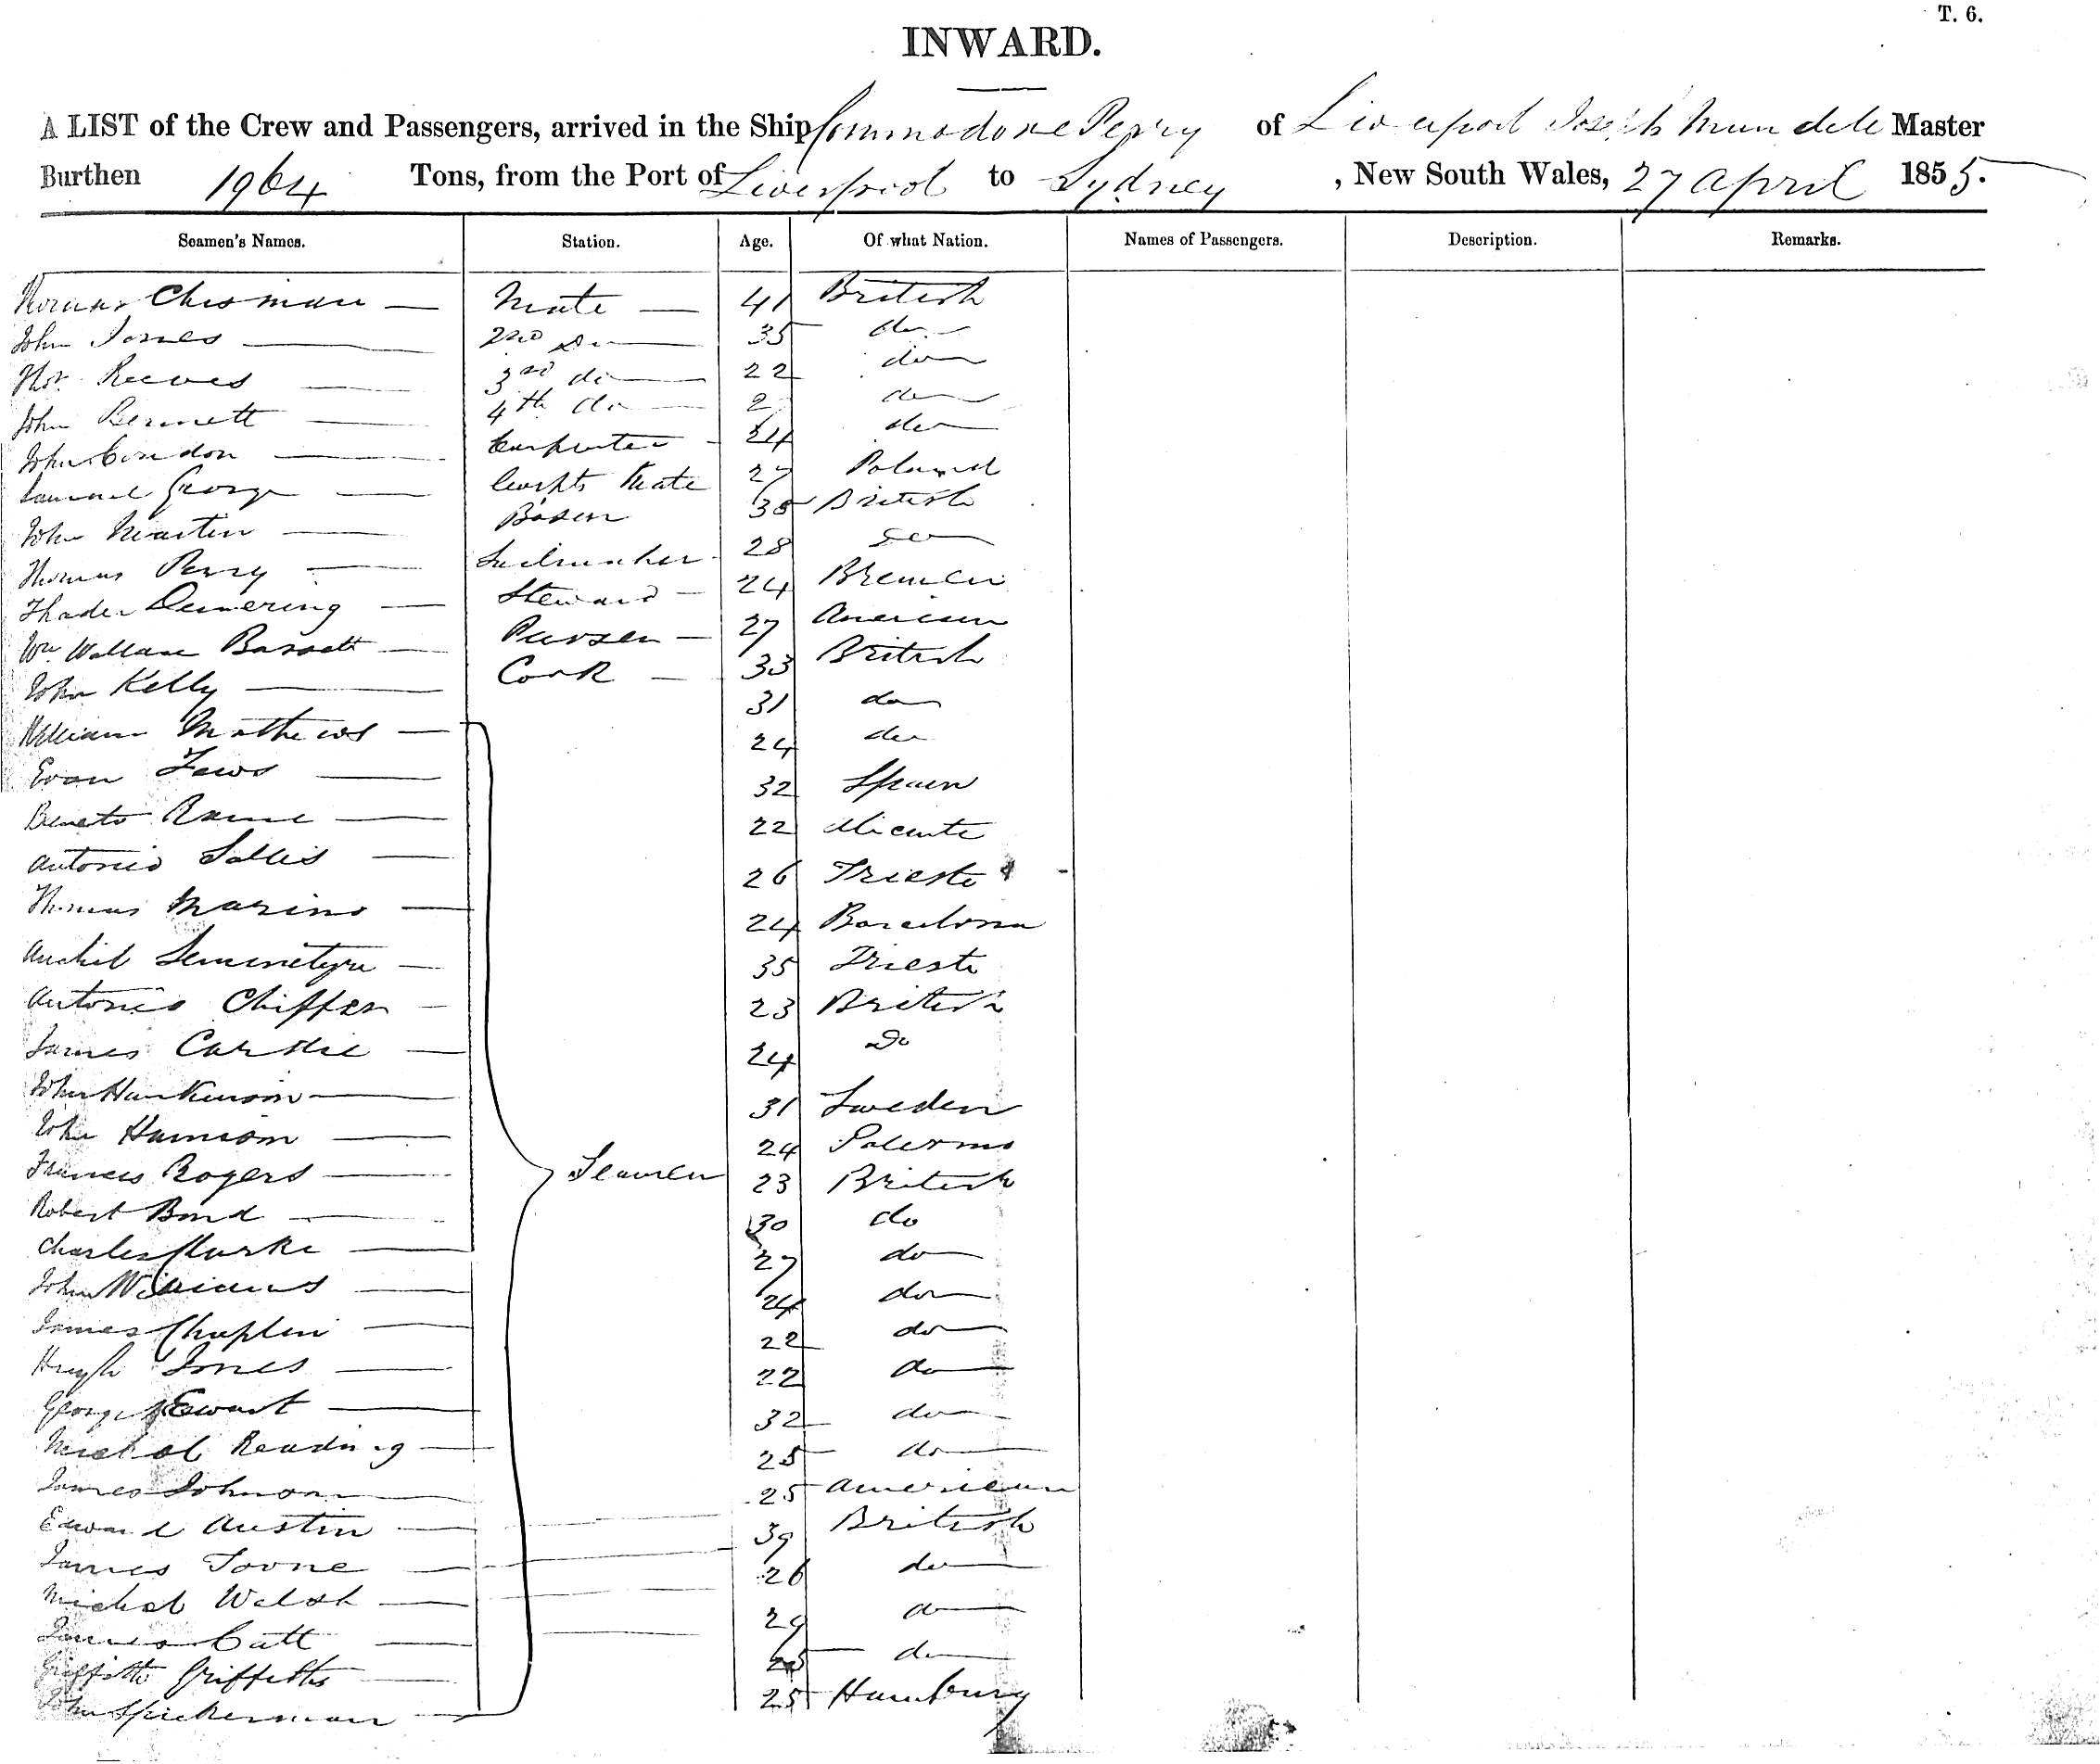 T. 6.
INWARD.
A LIST of the Crew and Passengers, arrived in the Ship Commodore Perry of Liverpool Joseph Mundele Master
Burthen 1964 Tons, from the Port of Liverpool to Sydney , New South Wales, 27 April 1855.
Seamen's Names. Station. Age. Of what Nation. Names of Passengers. Description. Remarks.
Thomas Chisman Mate 41 British
John Jones 2nd Do 35 do
Thos. Reeves 3rd do 22 do
John Bennett 4th do 2 do
John Condon Carpenter 24 do
Samuel George Carpts Mate 27 Poland
John Martin Bosen 38 British
Thomas Perry Sailmaker 28 Do
Thader Demering Steward 24 Bremen
Wm. Wallace Bassett Purser 27 American
John Kelly Cook 33 British
William Mathews 31 do
Evan Lewis 24 do
Beneto 32 Spain
Antonio Sallis 22 Alicante
Thomas Marino 26 Trieste
24 Barcelona
Antonio Chiffer 35 Trieste
James Carslie 23 British
John Hankinson 24 Do
John 31 Sweden
Francis Rogers Seamen 24 Palermo
Robert Bond 23 British
Charles Clarke 30 do
John Williams 27 do
James Chaplin 24 do
Hugh Jones 22 do
George Ewart 22 do
Michal Reading 32 do
James Johnson 25 do
Edward Austin 25 American
James Toone 39 British
Michal Welsh 26 do
James Catt 29 do
Griffith Griffiths do
John Spickerman 25 Hamburg